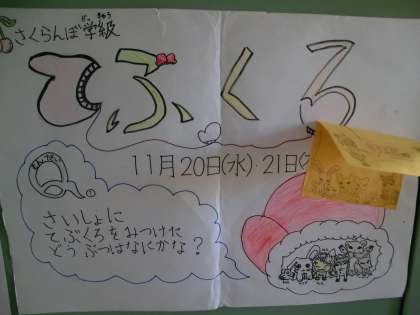 さくらんぼ学級
てぶくろ
11月20日(水) 21日(
さいしょに
てぶくろをみつけた
どうぶつはなにかな?